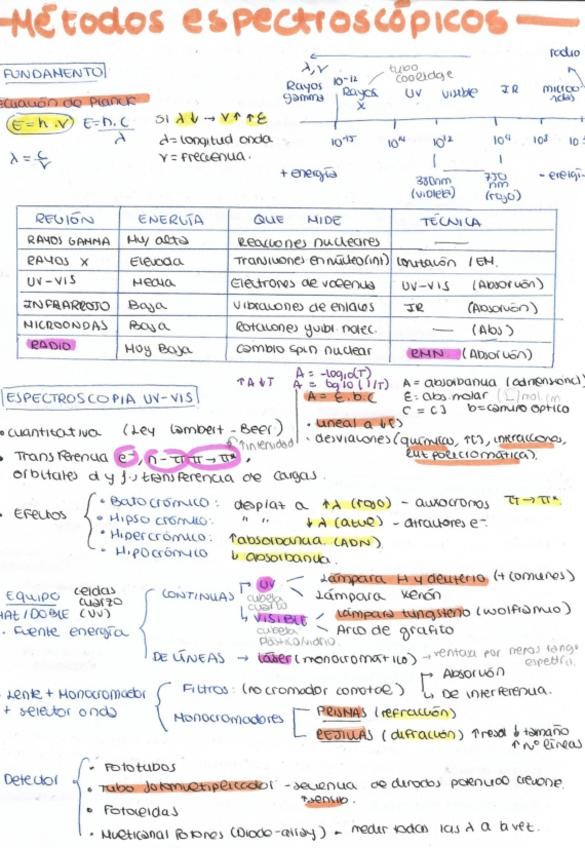 Métodos espectroscópicos
FUNDAMENTO
ecuación de Planck
E=h.ν E=h.c/λ
λ=c/ν
SI λ↓ → ν↑ ↑E
λ=longitud onda
ν=frecuencia.
radio
λ,ν
10⁻¹²
tubo coolidge
Rayos gamma
Rayos X
UV
visible
IR
micro ondas
+ energía
380nm (violeta)
750 nm (rojo)
- energí
REGIÓN ENERGÍA QUE MIDE TÉCNICA
RAYOS GAMMA Muy alta Reacciones nucleares —
RAYOS X Elevada Transiciones en núcleo(int) Ionización / EM.
UV-VIS Media Electrones de valencia UV-VIS (Absorción)
INFRARROJO Baja Vibraciones de enlaces IR (Absorción)
MICROONDAS Baja Rotaciones y vibr. molec. — (Abs)
RADIO Muy Baja Cambio spin nuclear RMN (Absorción)
ESPECTROSCOPIA UV-VIS
↑A↓T
A = -log10(T)
A = log10(1/T)
A = E.b.C
A = absorbancia (adimensional)
E: abs. molar (L/mol.cm
C = [ ] b=camino óptico
• cuantitativa (Ley Lambert-Beer)
↑intensidad
• Lineal a ↓[ ]
• desviaciones (química, ↑[ ], interacciones, luz policromática).
• Transferencia e⁻, n-π π→π*,
orbitales d y f, transferencia de cargas.
• Efectos
• Batocrómico: desplaz a ↑λ (rojo) - auxocromos π→π*
• Hipsocrómico: " " ↓λ (azul) - atractores e⁻.
• Hipercrómico: ↑absorbancia (ADN)
• Hipocrómico ↓absorbancia.
Equipo celdas cuarzo (UV)
HAZ/DOBLE
. Fuente energía
CONTINUAS
UV
cubeta cuarzo
Lámpara H y deuterio (+comunes)
Lámpara xenón
VISIBLE
cubeta plástico/vidrio
Lámpara tungsteno (wolframio)
Arco de grafito
DE LÍNEAS → láser (monocromático) → ventaja por menos rango espectral.
. Lente + Monocromador
+ selector onda
Filtros: (nocromador completo)
Absorción
De interferencia.
Monocromadores
PRISMAS (refracción)
REJILLAS (difracción) ↑resol ↓tamaño
↑nº líneas
Detector
• Fototubos
• Tubo fotomultiplicador - secuencia de dinodos potencial creciente.
↑sensib.
• Fotoceldas
• Multicanal fotones (Diodo-array) - medir todas las λ a la vez.